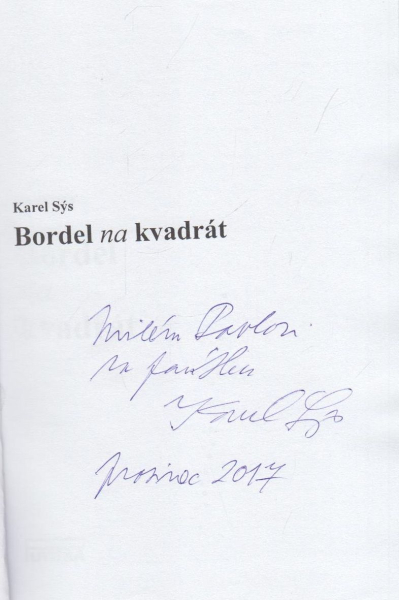 Karel Sýs
Bordel na kvadrát
Milému Pavlovi
na památku
Karel Sýs
prosinec 2017